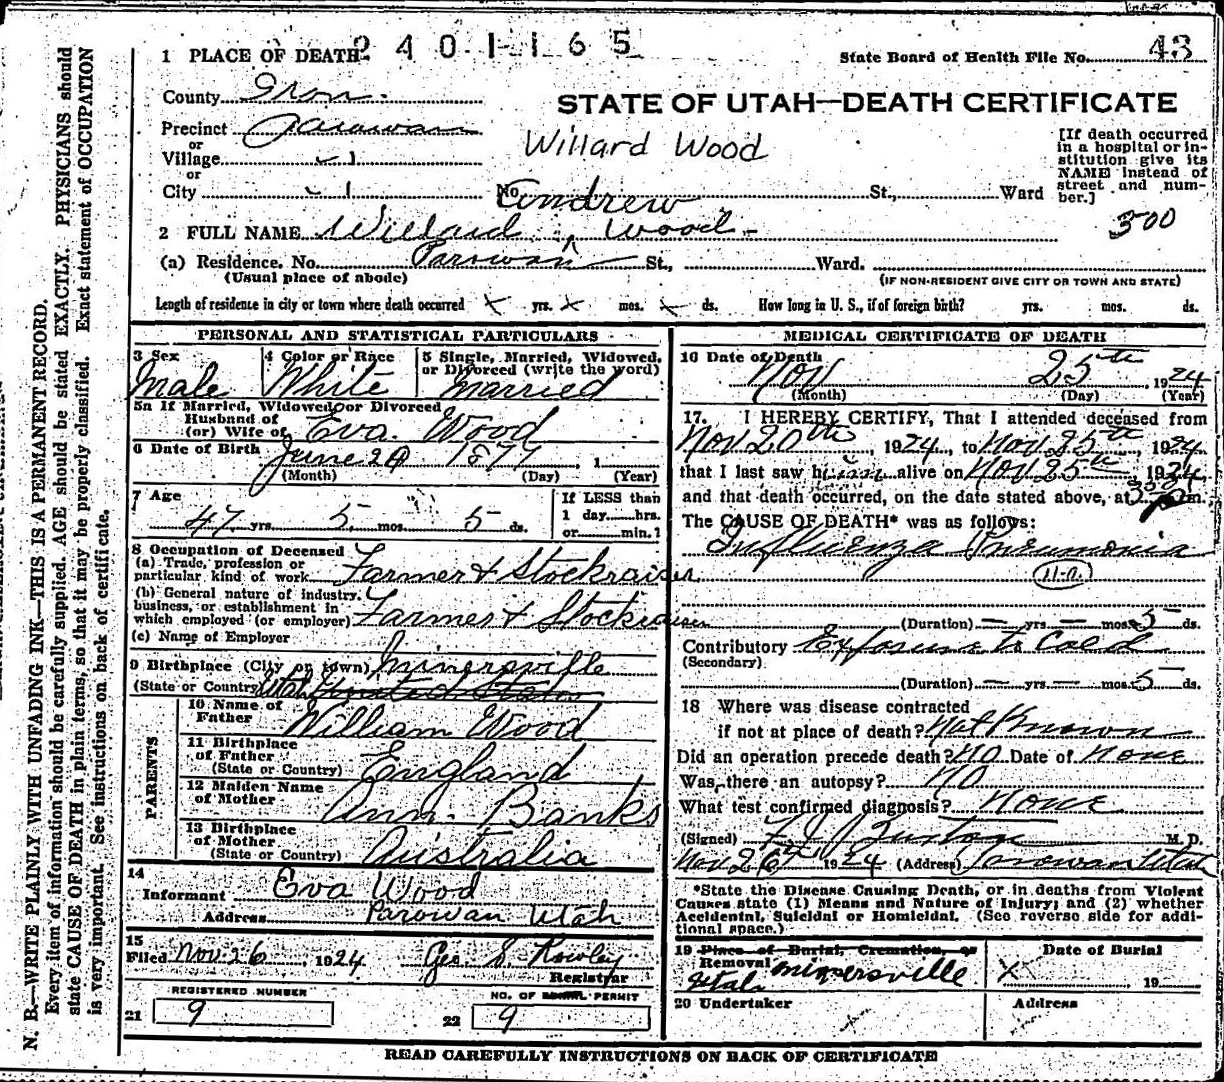 2401165
1 PLACE OF DEATH
State Board of Health File No. 43
County Iron
STATE OF UTAH—DEATH CERTIFICATE
Precinct Parowan
Willard Wood
or
Village
or
City No. St., Ward
[If death occurred in a hospital or institution give its NAME instead of street and number.]
Andrew
2 FULL NAME Willard ^ Wood
300
(a) Residence. No. Parowan St., Ward.
(Usual place of abode)
(IF NON-RESIDENT GIVE CITY OR TOWN AND STATE)
Length of residence in city or town where death occurred x yrs. x mos. x ds. How long in U. S., if of foreign birth? yrs. mos. ds.
PERSONAL AND STATISTICAL PARTICULARS
3 Sex
Male
4 Color or Race
White
5 Single, Married, Widowed, or Divorced (write the word)
Married
5a If Married, Widowed or Divorced
Husband of
(or) Wife of Eva Wood
6 Date of Birth June 20 1877, 1
(Month) (Day) (Year)
7 Age
47 yrs. 5 mos. 5 ds.
If LESS than
1 day......hrs.
or......min.?
8 Occupation of Deceased
(a) Trade, profession or
particular kind of work Farmer & Stockraiser
(b) General nature of industry,
business, or establishment in
which employed (or employer) Farmer & Stockraiser
(c) Name of Employer
9 Birthplace (City or town) Minersville
(State or Country) Utah United States
PARENTS
10 Name of
Father William Wood
11 Birthplace
of Father
(State or Country) England
12 Maiden Name
of Mother Ann Banks
13 Birthplace
of Mother
(State or Country) Australia
14
Informant Eva Wood
Address Parowan Utah
15
Filed Nov 26, 1924. Geo. S. Rowley
Registrar
REGISTERED NUMBER
21 9
NO. OF BURIAL PERMIT
22 9
MEDICAL CERTIFICATE OF DEATH
16 Date of Death
Nov 25th, 1924
(Month) (Day) (Year)
17. I HEREBY CERTIFY, That I attended deceased from
Nov 20th, 1924, to Nov 25th, 1924
that I last saw him alive on Nov 25th, 1924,
and that death occurred, on the date stated above, at m.
The CAUSE OF DEATH* was as follows:
Influenza Pneumonia
11-a.
(Duration) — yrs. — mos. 5 ds.
Contributory Exposure to Cold
(Secondary)
(Duration) — yrs. — mos. 5 ds.
18 Where was disease contracted
if not at place of death? Not Known
Did an operation precede death? NO Date of None
Was there an autopsy? NO
What test confirmed diagnosis? None
(Signed) M. D.
Nov 26th 1924 (Address) Parowan Utah
*State the Disease Causing Death, or in deaths from Violent
Causes state (1) Means and Nature of Injury; and (2) whether
Accidental, Suicidal or Homicidal. (See reverse side for addi-
tional space.)
19 Place of Burial, Cremation, or
Removal Minersville
Utah
Date of Burial
X 19
20 Undertaker
Address
READ CAREFULLY INSTRUCTIONS ON BACK OF CERTIFICATE
N. B.—WRITE PLAINLY WITH UNFADING INK—THIS IS A PERMANENT RECORD.
Every item of information should be carefully supplied. AGE should be stated EXACTLY. PHYSICIANS should
state CAUSE OF DEATH in plain terms, so that it may be properly classified. Exact statement of OCCUPATION
is very important. See instructions on back of certificate.